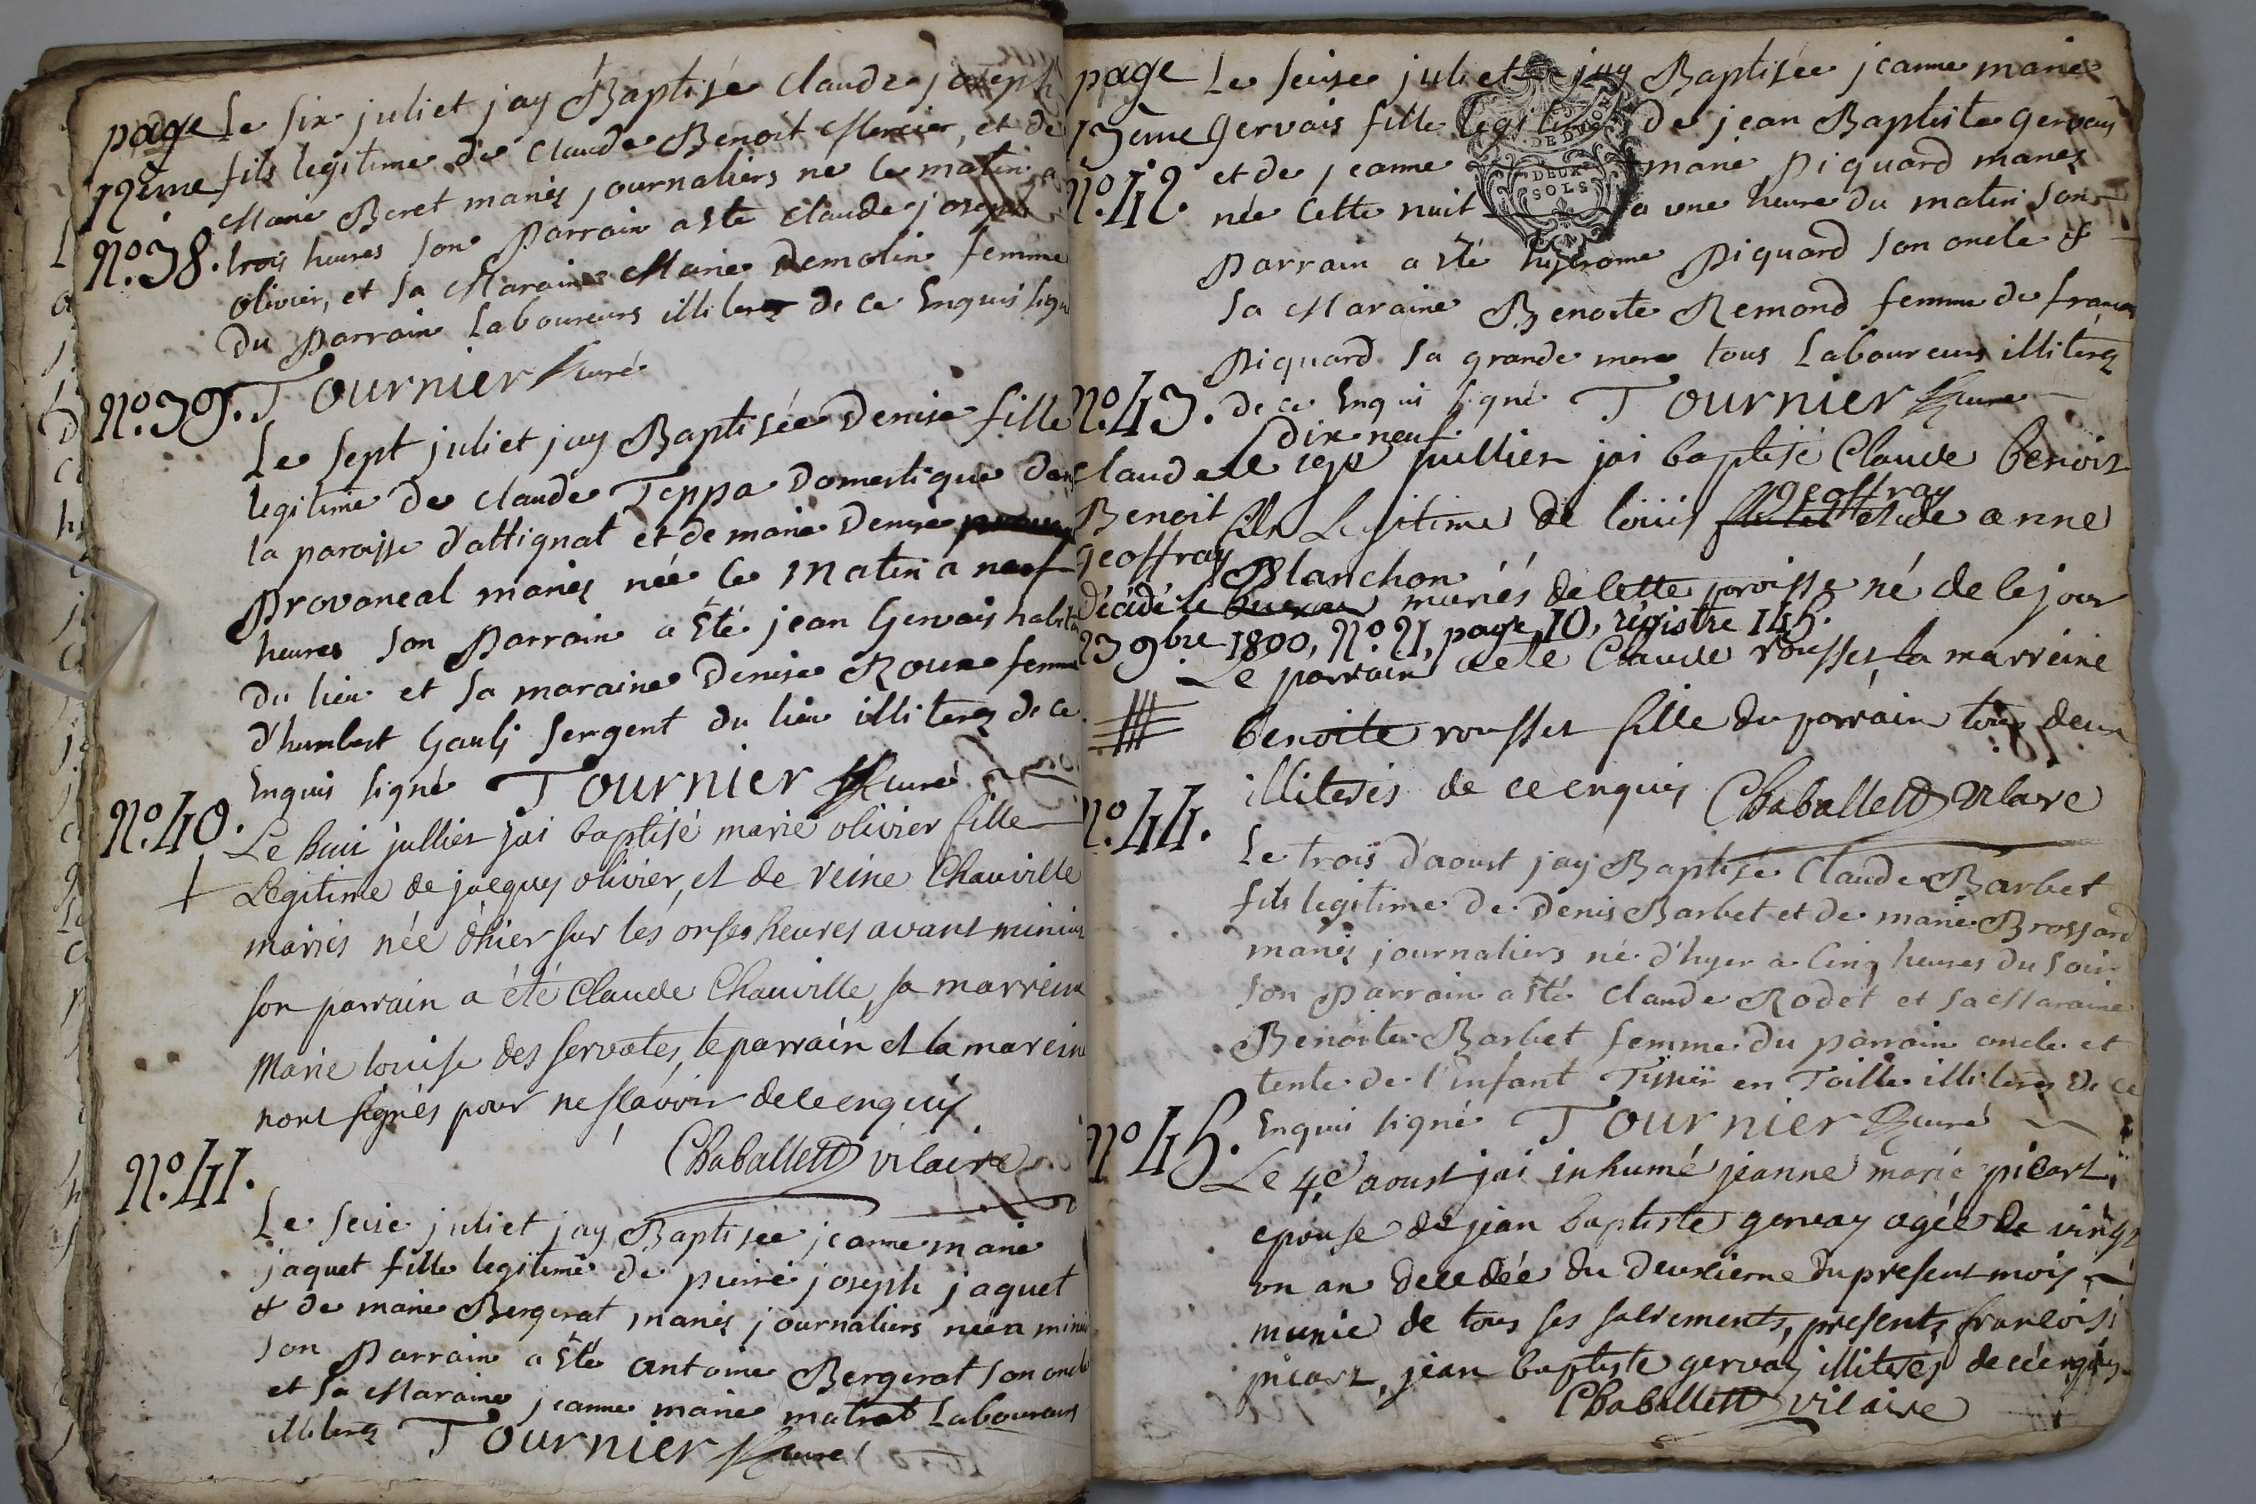 page
12ème
Le six juliet jay Baptisé claude joseph
fils legitime de claude Benoit Mercier, et de
Marie Beret mariez journaliers né le matin a
N°.38. trois heures son Parrain a Eté claude joseph
olivier, et sa Maraine Marie Demolin femme
du Parrain Laboureurs illiterez de ce Enquis signé
Tournier Curé
N°.39.
Le sept juliet jay Baptisée Denise fille
legitime de claude Teppa Domestique dans
la paroisse d'attignat et de marie Denise
Provoncal mariez née le matin a neuf
heures son Parrain a Eté jean Gervais habitant
du lieu et sa maraine Denise Roux femme
d'humbert Gauli sergent du lieu illiterez de ce
Enquis signé Tournier Curé
N°.40.
Le huit jullier jai baptisé marie olivier fille
Legitime de jacques olivier, et de reine Chauville
mariés née d'hier sur les onses heures avant minuit
son parrain a été Claude Chauville, sa marreine
Marie louise des servates, le parrain et la mareine
nont signés pour ne sçavoir de ce enquis
Chaballett vicaire
N°.41.
Le seise juliet jay Baptisée jeanne marie
jaquet fille legitime de pierre joseph jaquet
& de marie Bergerat mariez journaliers née a minuit
son Parrain a Eté antoine Bergerat son oncle
et sa Maraine jeanne marie matrat Laboureurs
illiterez Tournier Curé
page
13ème
Le seise juliet jay Baptisée jeanne marie
Gervais fille legitime de jean Baptiste Gervais
DEUX
SOLS
N°.42. et de jeanne marie Piquard mariez
née cette nuit a une heure du matin son
Parrain a Eté hyerome Piquard son oncle &
sa Maraine Benoite Remond femme de francois
Piquard sa grande mere tous Laboureurs illiterez
N°.43. de ce Enquis signé Tournier Curé
dix neuf
le sept jullier jai baptisé Claude benoit
Claude
Benoit
geoffray
geoffray
fils Legitime de louis et de anne
Blanchon mariés de cette paroisse né de ce jour
décédé le
23 9bre 1800, N°. 21, page 10, régistre 145.
Le parrain a eté Claude rousset la marreine
benoite rousset fille du parrain tous deux
illiterés de ce enquis Chaballett vicaire
N°.44.
Le trois d'aoust jay Baptisé Claude Barbet
fils legitime de Denis Barbet et de marie Brossard
mariez journaliers né d'hyer a cinq heures du soir
son Parrain a Eté claude Rodet et sa Maraine
Benoite Barbet femme du parrain oncle et
tente de l'Enfant Tissier en Toille illiterez de ce
Enquis signé Tournier Curé
N°.45.
Le 4e aoust jai inhumé jeanne marie picart
epouse de jean baptiste gervay agée de vingt
un an decedée du deuxieme du present mois
munie de tous ses sacrements, presents francois
picart, jean baptiste gervay illiterés de ce enquis
Chaballett vicaire